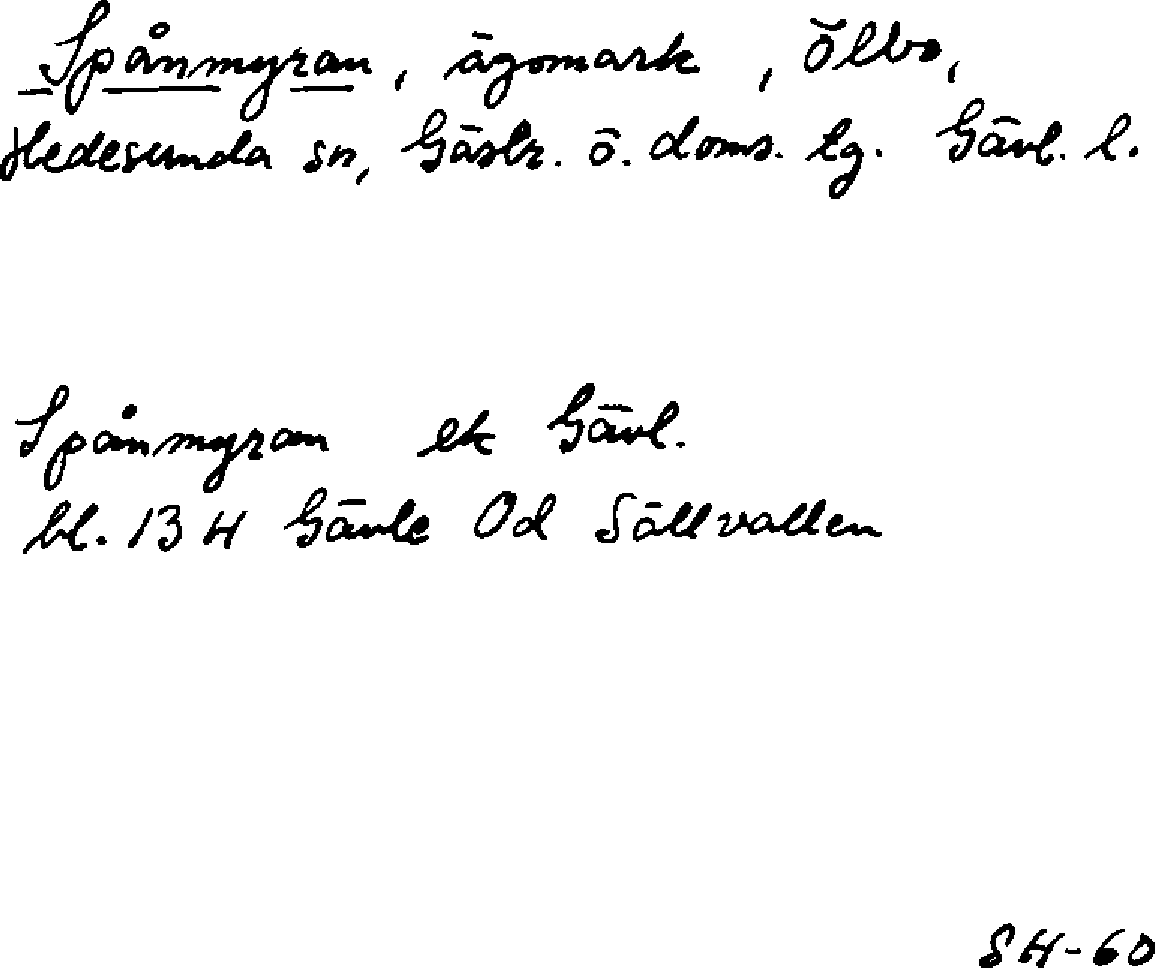 Spånmyran, ägomark, Ölbo,
Hedesunda sn, Gästr. ö. doms. tg. Gävl. l.
Spånmyran ek Gävl.
bl. 13 H Gävle 0d Sällvallen
SH-60